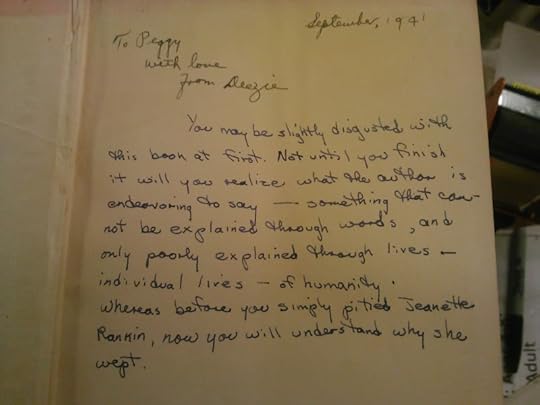 September, 1941
To Peggy
with love
From Deezie
You may be slightly disgusted with
this book at first. Not until you finish
it will you realize what the author is
endeavoring to say — something that can-
not be explained through words, and
only poorly explained through lives —
individual lives — of humanity.
Whereas before you simply pitied Jeanette
Rankin, now you will understand why she
wept.
Adult